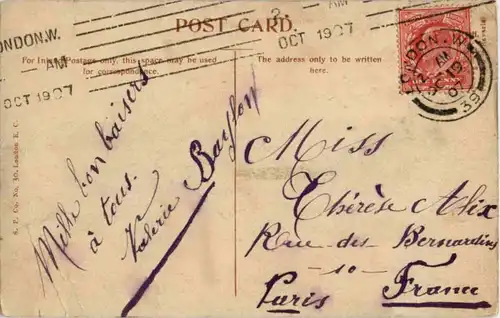 POST CARD
LONDON.W.
AM
OCT 19 07
2
OCT 1907
For Inland Postage only, this space may be used
for correspondence.
The address only to be written
here.
LONDON. W.
AM
39
Mille bon baisers
à tous.
Valerie Baylon
Miss
Thérèse Alix
Rue des Bernardins
10
Paris France